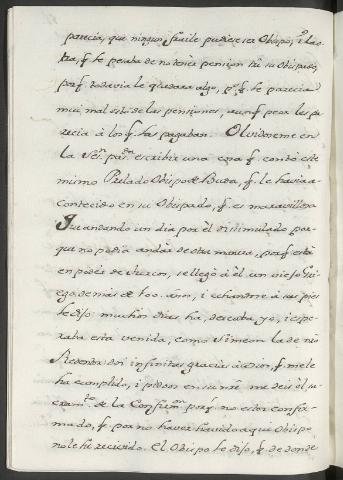 parecia, que ningun fraile pudiese ser Obispo, i la o-
tra, q. le pesaba de no tener pension en su Obispado,
porq. todavia le quedara algo, pr. q. le parecia
mui mal esto de las pensiones, aunq. peor les pa-
recia à los q. las pagaban. Olvidoseme en
la escribir una cosa q. contò este
mismo Prelado Obispo de Buda, q. le havia a-
contecido en su Obispado, q. es maravillosa
Iva andando un dia por èl disimulado por-
que no podia andar de otra manera, porq. està
en poder de Turcos, se llegò à èl un viejo Gri-
ego de màs de 100. años, i echandose à sus pies
le dijo: muchos dias ha, deseaba yo, i espe-
raba esta venida, como Simeon la de nro
Redentor doi infinitas gracias à Dios, q. me le
ha cumplido, i pidoos en su nre. me deis el Sa-
cramto. de la Confirmon. porq. no estoi confir-
mado, q. por no haver havido aqui Obispo
no le he recivido. El Obispo le dijo, q. de donde